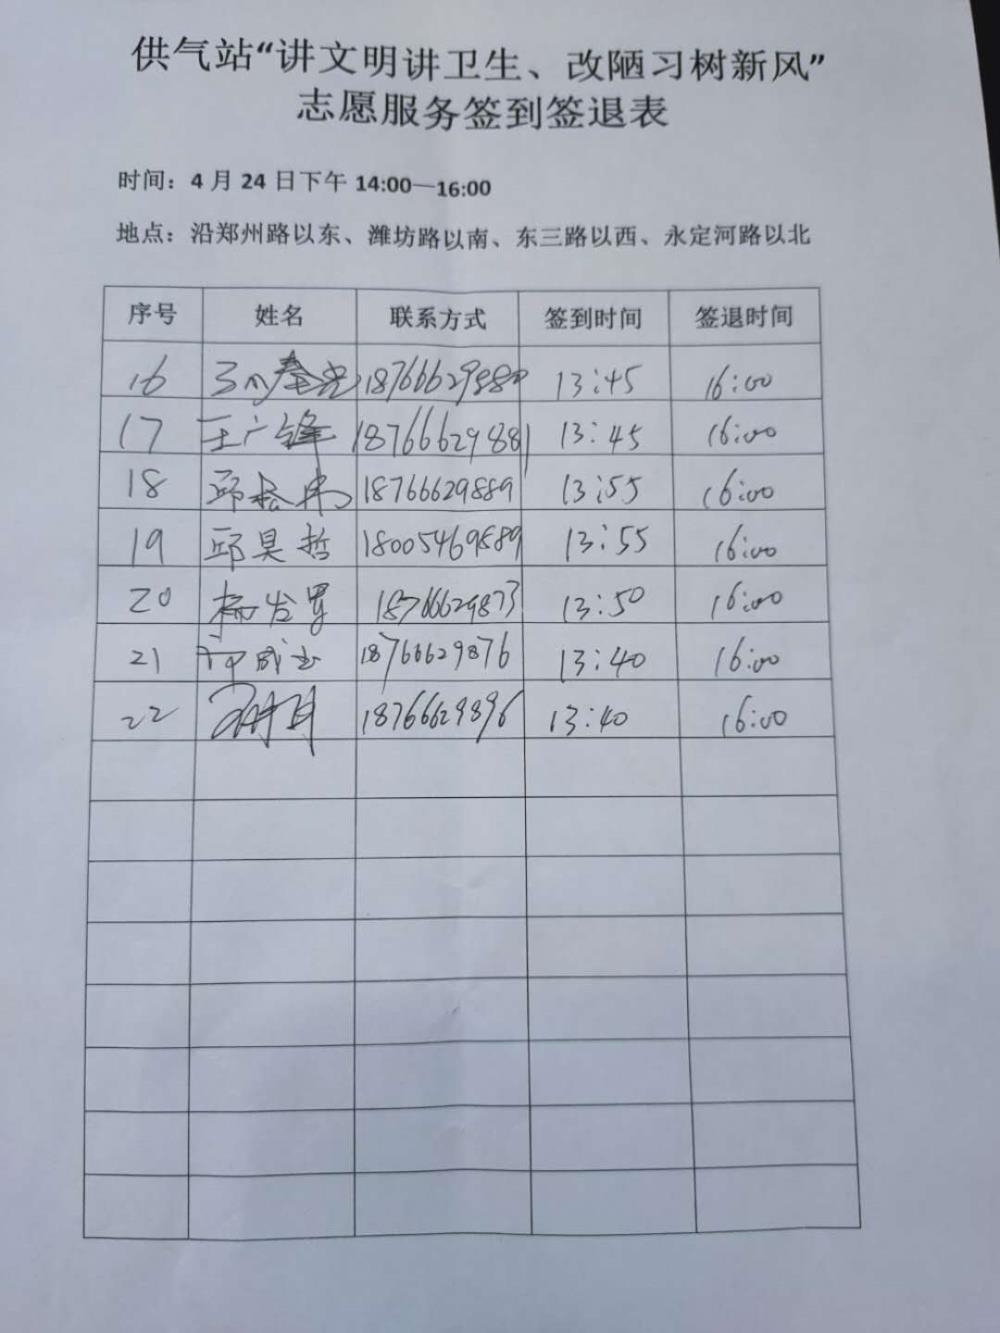 供气站“讲文明讲卫生、改陋习树新风”
志愿服务签到签退表
时间：4月24日下午14:00—16:00
地点：沿郑州路以东、潍坊路以南、东三路以西、永定河路以北
序号 姓名 联系方式 签到时间 签退时间
16 18766629880 13:45 16:00
17 王广锋 18766629881 13:45 16:00
18 邱松伟 18766629889 13:55 16:00
19 邱昊哲 18005469889 13:55 16:00
20 18766629873 13:50 16:00
21 18766629876 13:40 16:00
22 18766629896 13:40 16:00